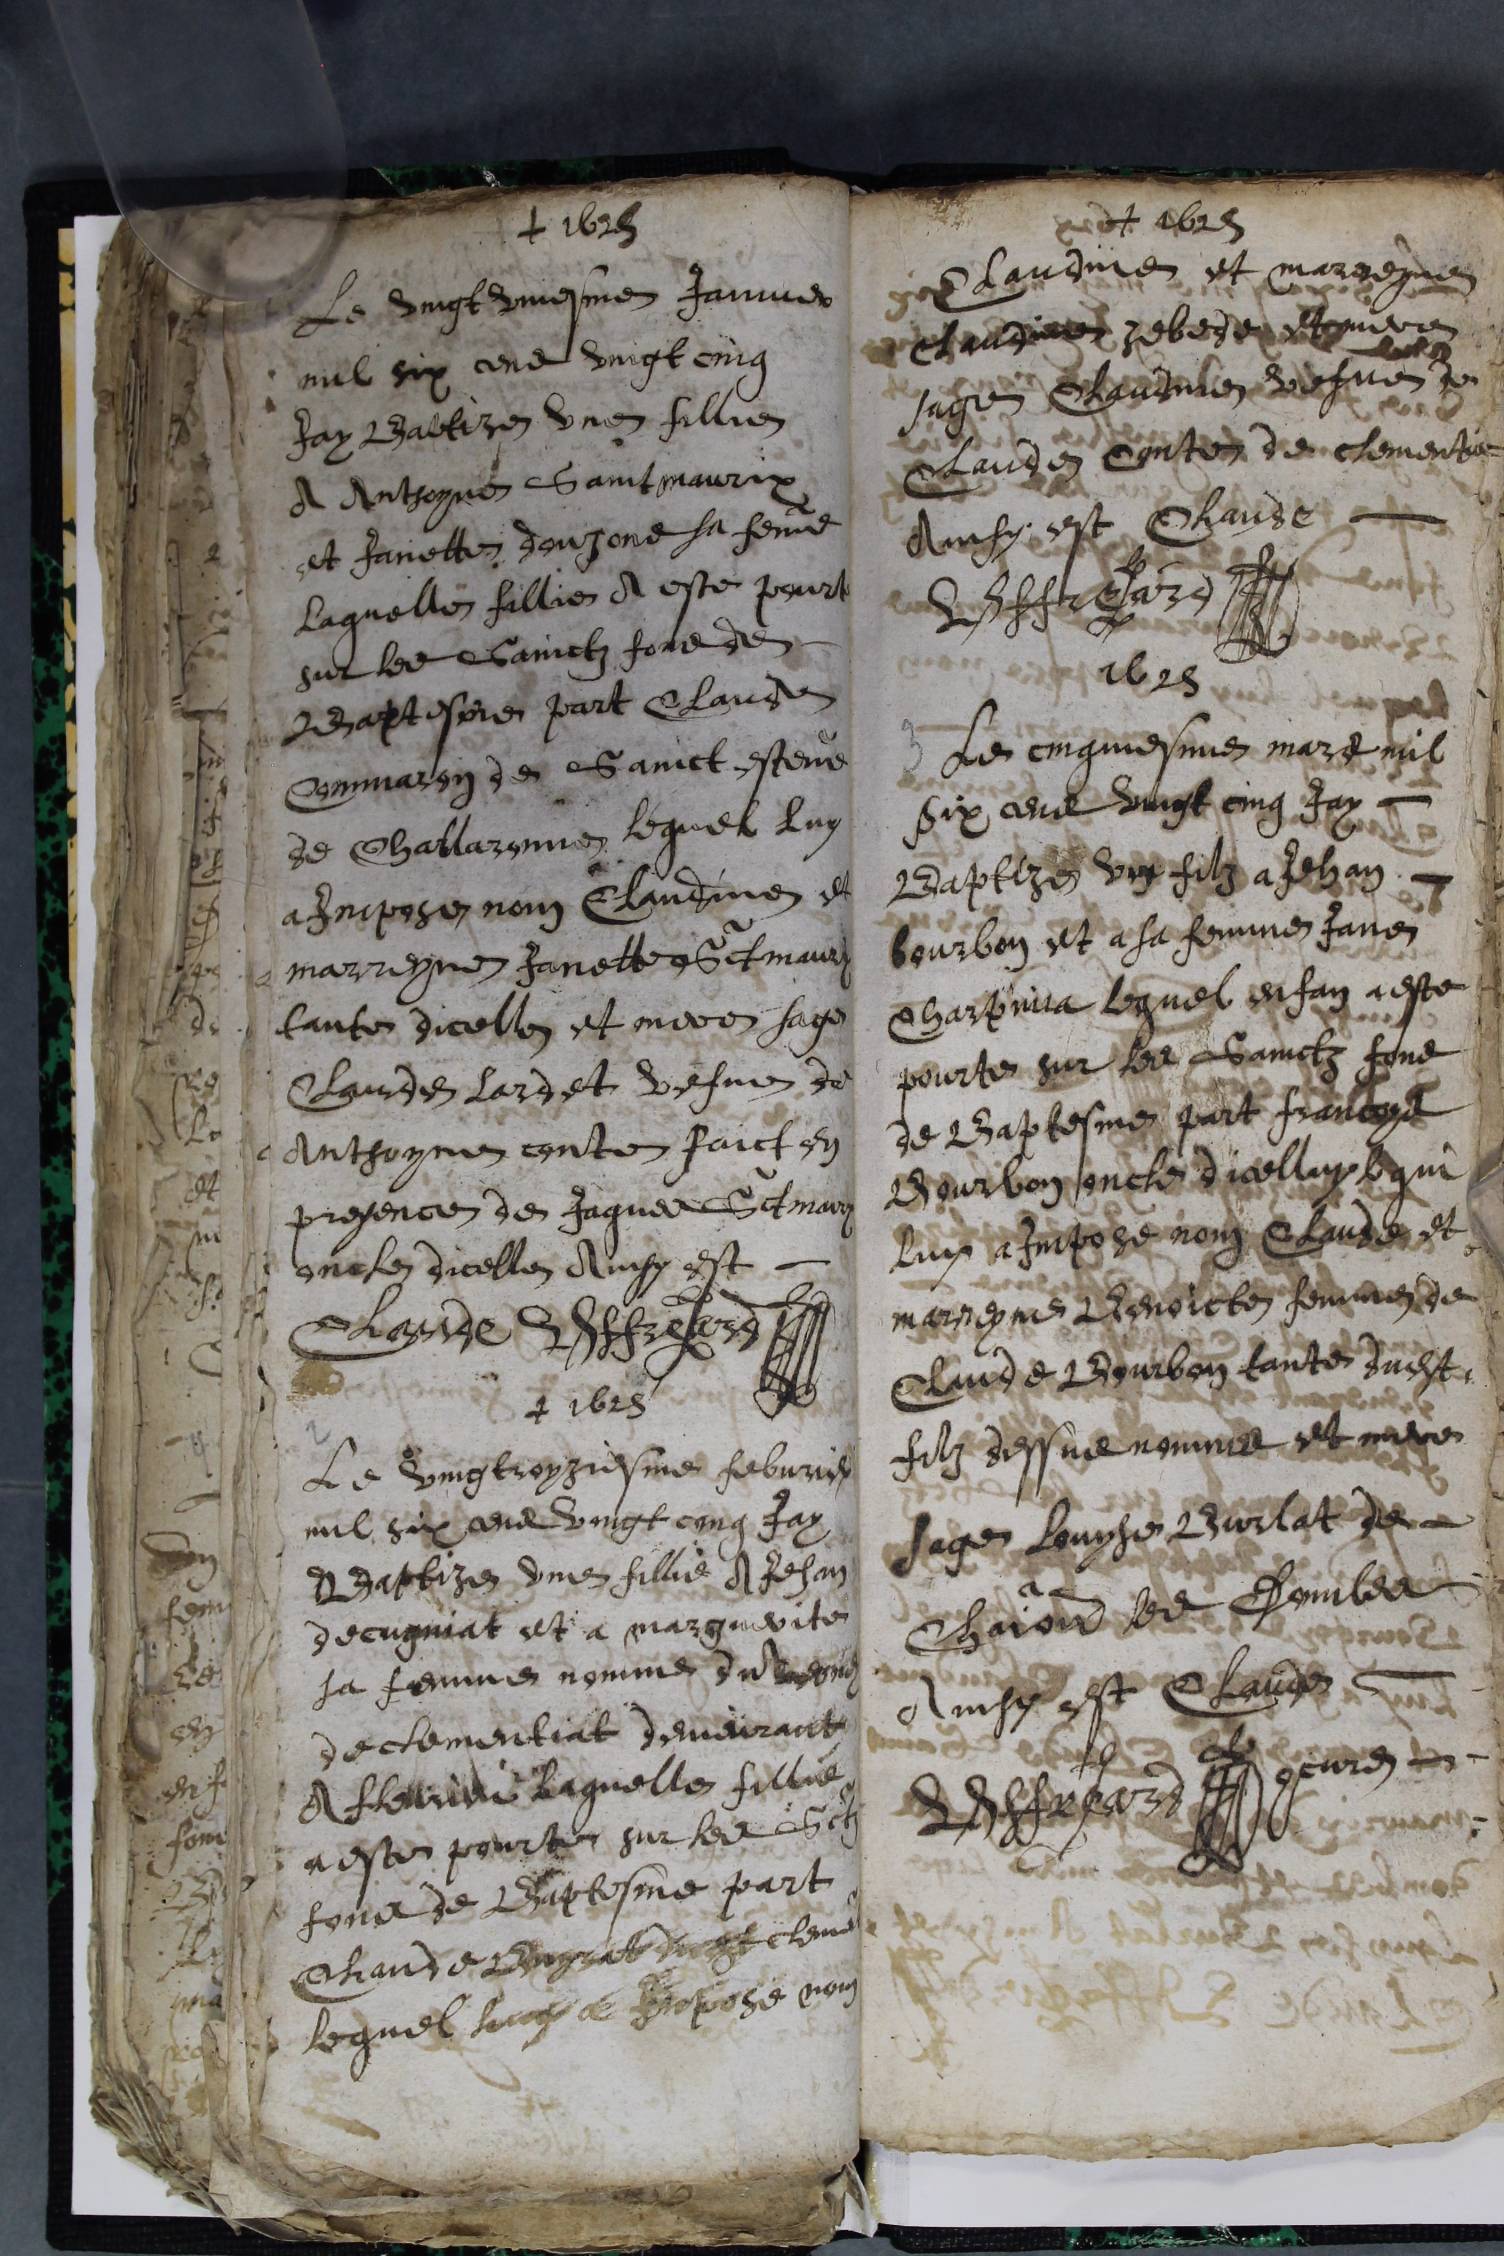 + 1625
Le vingt uniesme Janvier
mil six cens vingt cinq
Jay Babtize une fillie
A Anthoyne Saint maurix
et Janette sa feme
laquelle fillie A este pourte
sur les Sainctz fons de
Baptesme part Claude
de Sainct esteve
de Challaronne lequel luy
a Impose nom Claudine et
marreyne Janette Sct maury
tante dicelle et mere sage
Claude Lardet vefue de
Anthoyne conte faict en
presence de Jaques Sct maury
oncle dicelle Ainsy est
Claude
+ 1625
2
Le vingtroyziesme feburier
mil six cens vingt cinq Jay
Baptize une fillie A Jehan
decugniat et a marguerite
sa femme nomme
de clementiat demeurant
A laquelle fillie
a este pourte sur les Sctz
fons de Baptesme part
Claude
lequel luy a Impose nom
+ 1625
Claudine et marreyne
Claudine et mere
sage Claudine vefue de
Claude Conte de clementia
Ainsy est Claude
1625
3 Le cinquiesme mars mil
six cens vingt cinq Jay
Baptize ung filz a Jehan
bourbon et a sa femme Jane
lequel enfan a este
pourte sur les Sainctz fons
de Baptesme part francoys
Bourbon oncle dicelluy lequi
luy a Impose nom Claude et
marreyne Benoicte femme de
Claude Bourbon tante dudt
filz dessus nomme et mere
sage Louyse Burlat de
les Dombes
Ainsy est Claude
cure